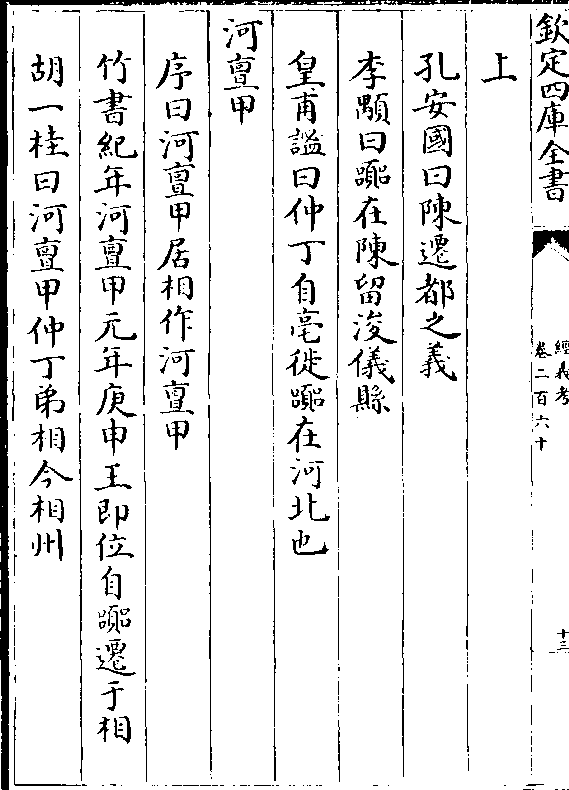 欽定四庫全書
經義考
卷二百六十
十三
上
孔安國曰陳遷都之義
李顒曰嚻在陳留浚儀縣
皇甫謐曰仲丁自亳徙嚻在河北也
河亶甲
序曰河亶甲居相作河亶甲
竹書紀年河亶甲元年庚申王即位自嚻遷于相
胡一桂曰河亶甲仲丁弟相今相州